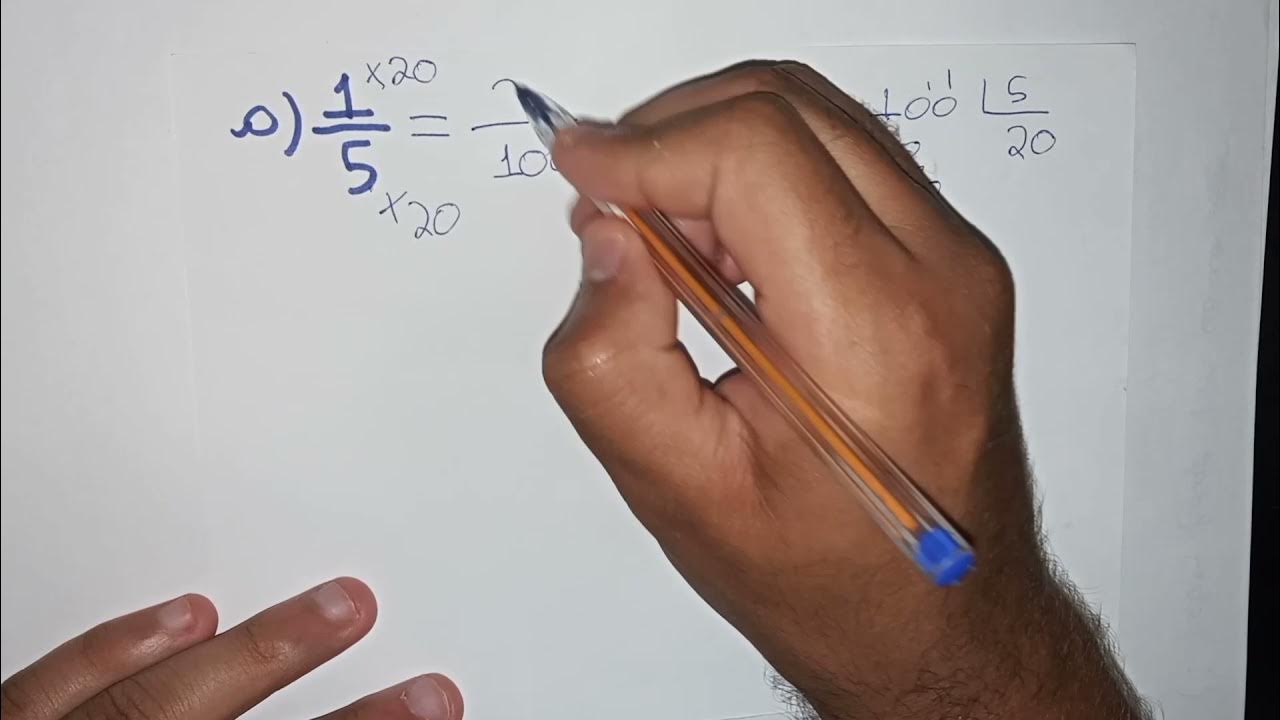 a) 1/5 ×20 ×20 = 2/10
100 | 5
20